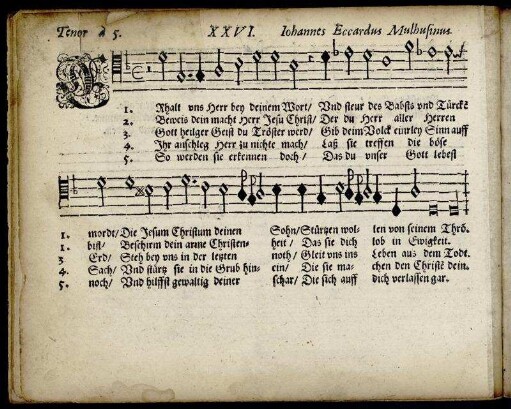 Tenor à 5. XXVI. Iohannes Eccardus Mulhusinus.
1. Rhalt vns Herr bey deinem Wort/ Vnd steur des Babsts vnd Türckē
2. Beweis dein macht Herr Jesu Christ/ Der du Herr aller Herren
3. Gott heilger Geist du Tröster werd/ Gib deim Volck einrley Sinn auff
4. Ihr anschleg Herr zu nichte mach/ Laß sie treffen die böse
5. So werden sie erkennen doch/ Das du vnser Gott lebest
1. mordt/ Die Jesum Christum deinen Sohn/ Stürtzen wol- len von seinem Thrō.
1. bist/ Beschirm dein arme Christen- heit/ Das sie dich lob in Ewigkeit.
3 Erd/ Steh bey vns in der letzten noth/ Gleit vns ins Leben aus dem Todt.
4. Sach/ Vnd stürtz sie in die Grub hin- ein/ Die sie ma- chen den Christē dein.
5. noch/ Vnd hilffst gewaltig deiner schar/ Die sich auff dich verlassen gar.